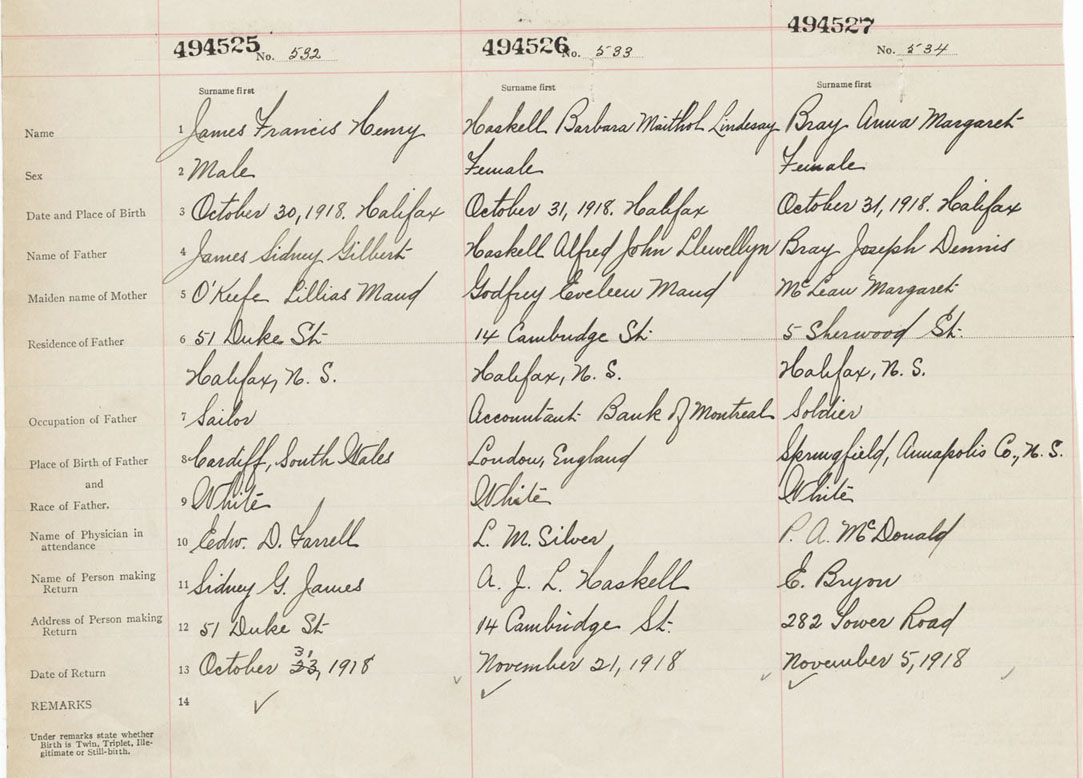 494525 No. 532 494526 No. 533 494527 No. 534
Surname first Surname first Surname first
Name 1 James Francis Henry Haskell Barbara Lindesay Bray Anna Margaret
Sex 2 Male Female Female
Date and Place of Birth 3 October 30, 1918. Halifax October 31, 1918. Halifax October 31, 1918. Halifax
Name of Father 4 James Sidney Gilbert Haskell Alfred John Llewellyn Bray Joseph Dennis
Maiden name of Mother 5 O'Keefe Lillias Maud Godfrey Eveleen Maud McLean Margaret
Residence of Father 6 51 Duke St 14 Cambridge St 5 Sherwood St.
Halifax, N. S. Halifax, N. S. Halifax, N. S.
Occupation of Father 7 Sailor Accountant Bank of Montreal Soldier
Place of Birth of Father 8 Cardiff, South Wales London, England Springfield, Annapolis Co., N. S.
and
Race of Father. 9 White White White
Name of Physician in attendance 10 Edw. D. Farrell L. M. Silver P. A. McDonald
Name of Person making Return 11 Sidney G. James A. J. L. Haskell E. Bryon
Address of Person making Return 12 51 Duke St 14 Cambridge St. 282 Tower Road
Date of Return 13 October 31, 1918 November 21, 1918 November 5, 1918
REMARKS 14
Under remarks state whether
Birth is Twin, Triplet, Ille-
gitimate or Still-birth.